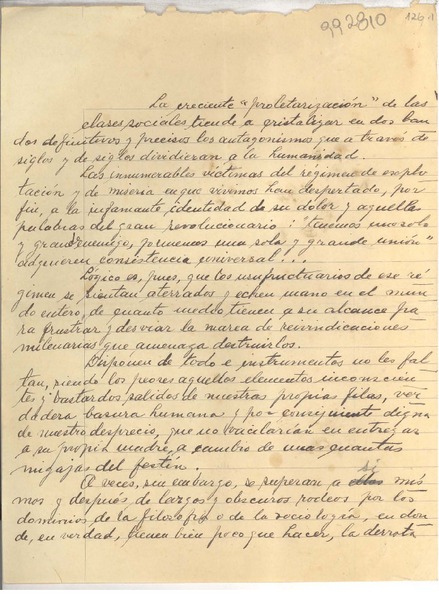 992810
126-1
La creciente "proletarización" de las
clases sociales tiende a cristalizar en dos ban
dos definitivos y precisos los antagonismos que a través de
siglos y de siglos dividieran a la humanidad.
Las innumerables víctimas del régimen de explo
tación y de miseria en que vivimos han despertado, por
fin, a la infamante identidad de su dolor y aquellas
palabras del gran revolucionario: "tenemos un solo
y gran enemigo, formemos una sola y grande unión"
adquieren consistencia universal....
Lógico es, pues, que los usufructuarios de ese ré
gimen se sientan aterrados y echen mano en el mun
do entero, de cuanto medio tienen a su alcance pa
ra frustrar y desviar la marea de reivindicaciones
milenarias que amenaza destruirlos.
Disponen de todo e instrumentos no les fal
tan, siendo los peores aquellos elementos inconscien
tes y bastardos salidos de nuestras propias filas, ver
dadera basura humana y por consiguiente digna
de nuestro desprecio, que no vacilarían en entregar
a su propia madre a cambio de unas cuantas
migajas del festín.
A veces, sin embargo, se superan a sí mis
mos y después de largos y obscuros rodeos por los
dominios de la filosofía o de la sociología, en don
de, en verdad, tienen bien poco que hacer, la derrota